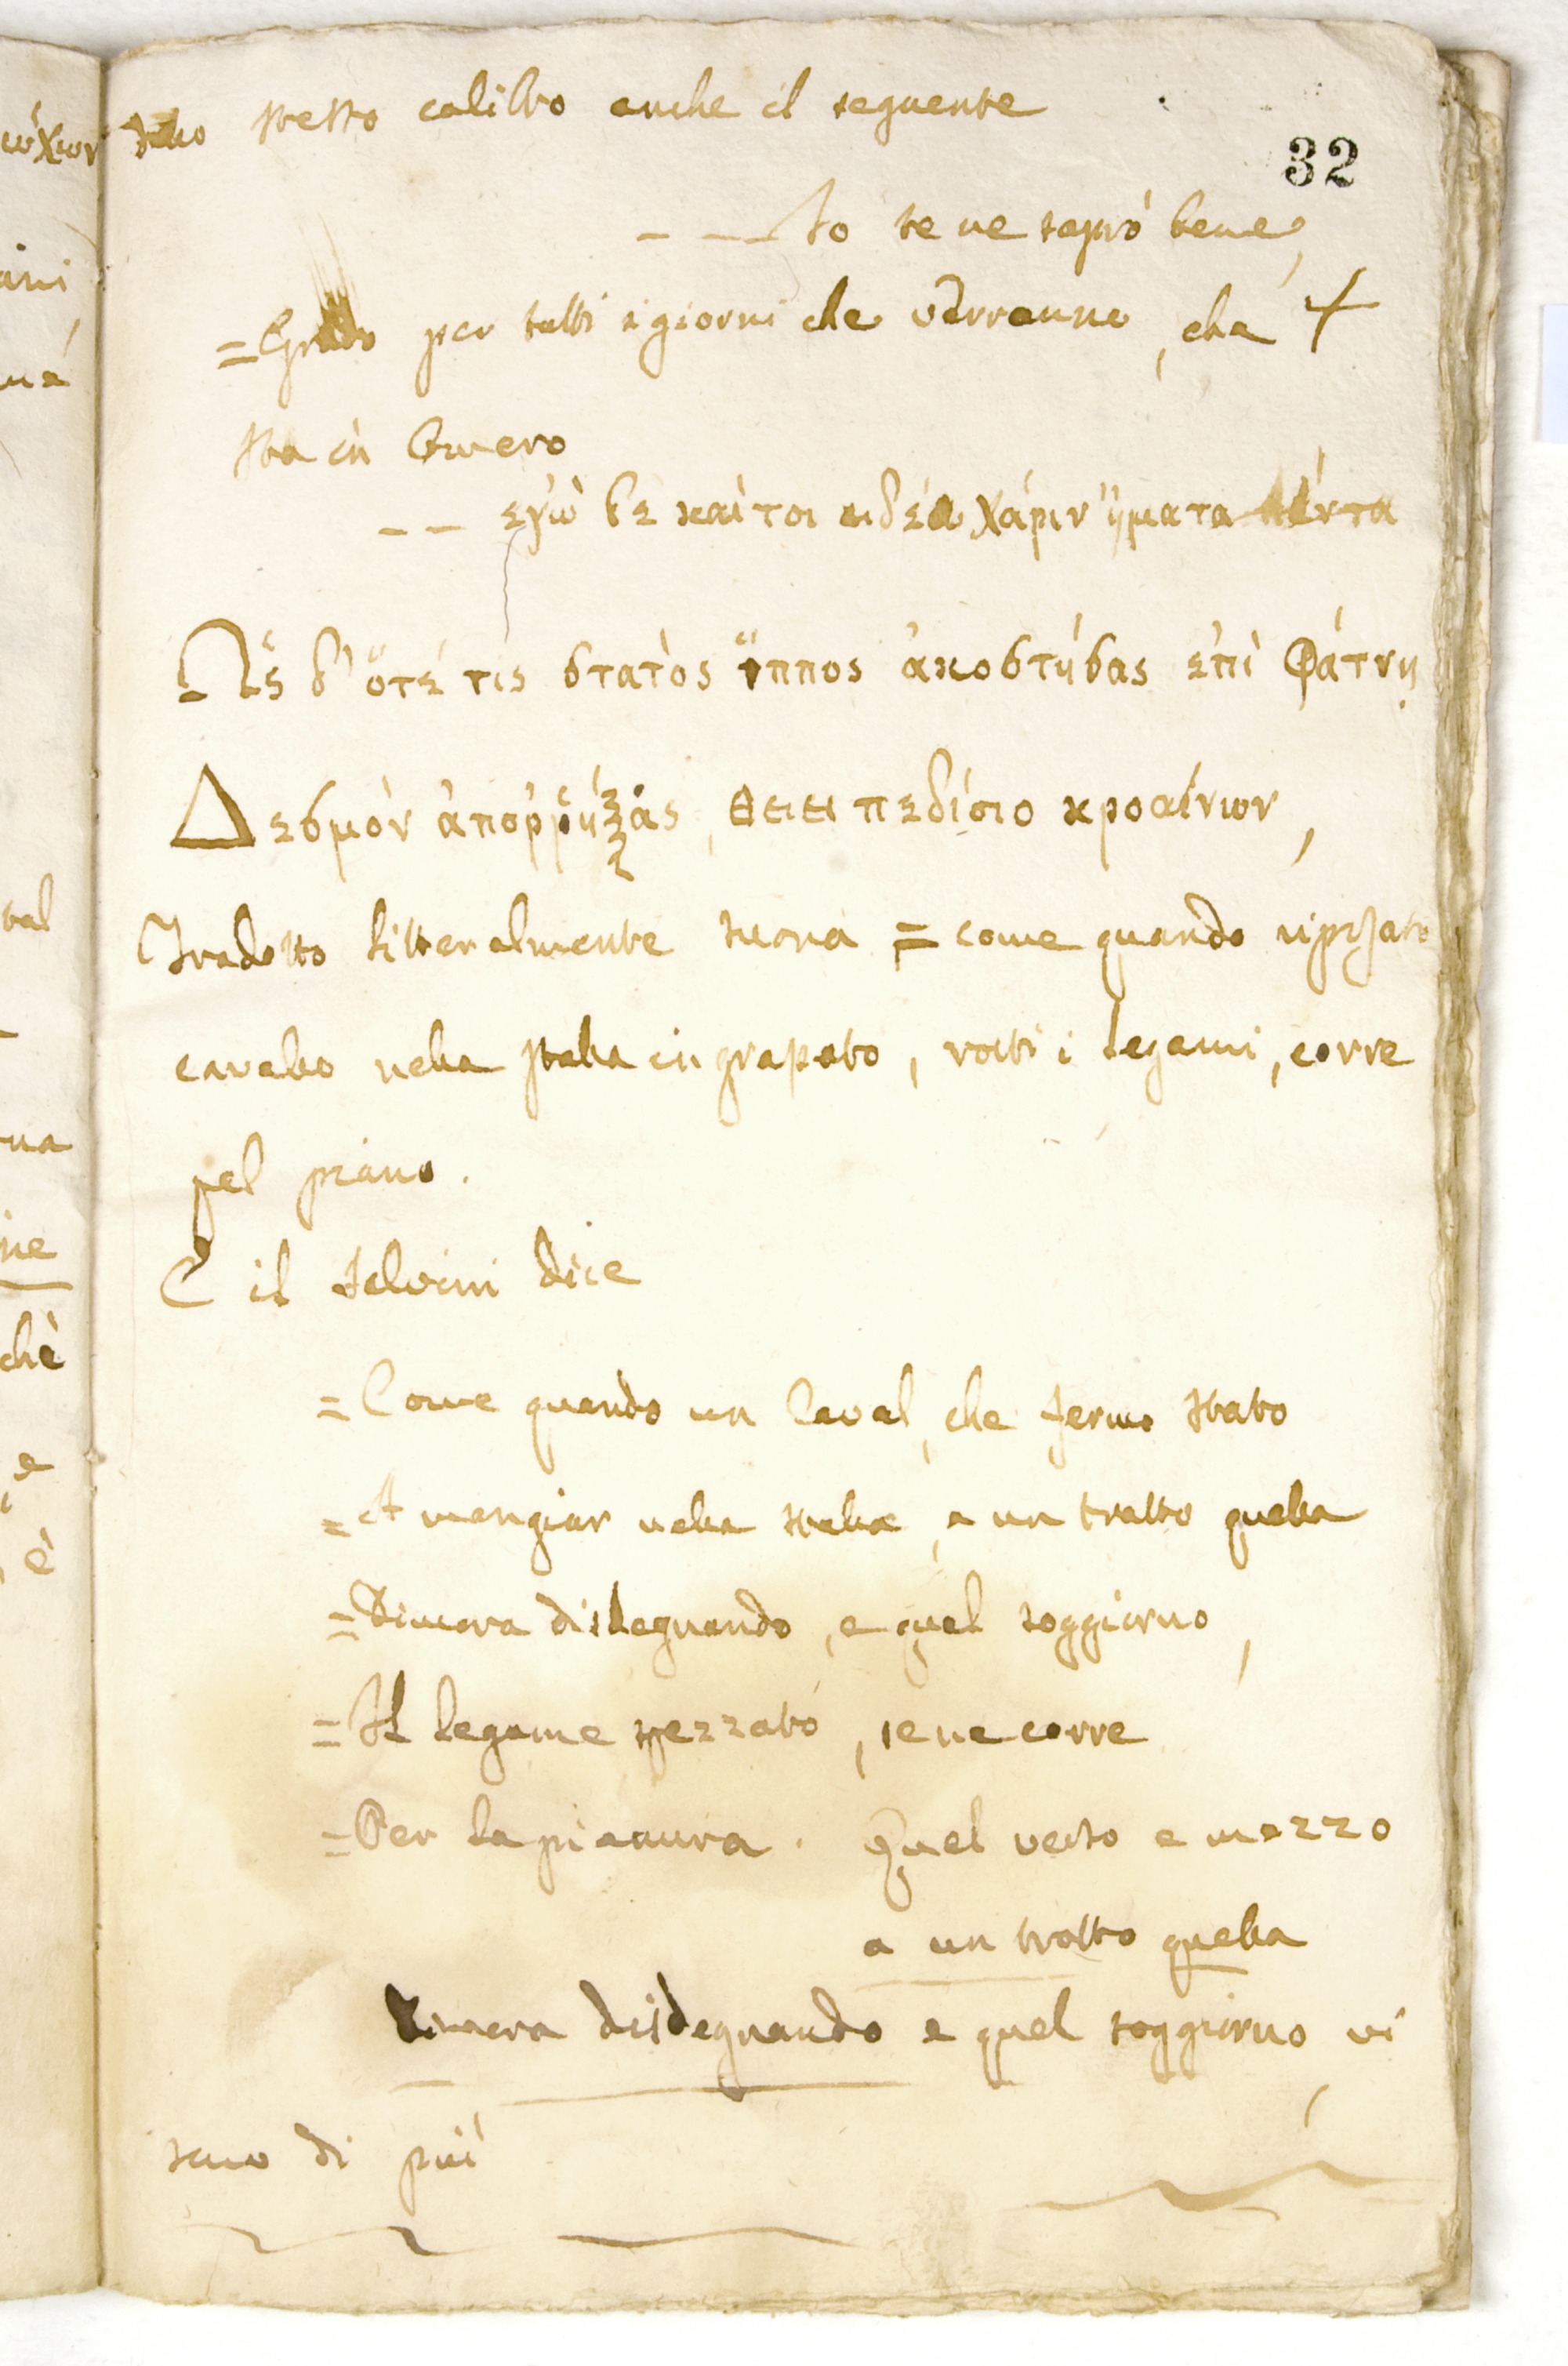 dello stesso calibro anche il seguente
32
- - - Io te ne saprò bene,
= Grado per tutti i giorni che verranno, che +
sta in Omero
- - ἐγὼ δέ καί τοι εἰδέω χάριν ἤματα πάντα
Ὡς δ' ὅτέ τις στατὸς ἵππος ἀκοστήσας ἐπὶ φάτνῃ
Δεσμὸν ἀποῤῥήξας, θείει πεδίοιο κροαίνων,
Tradotto litteralmente suona = come quando riposato
cavallo nella stalla ingrassato, rotti i legami, corre
pel piano.
E il Salvini dice
= Come quando un Caval, che fermo stato
= A mangiar nella stalla, a un tratto quella
= Dimora disdegnando, e quel soggiorno,
= Il legame spezzato, se ne corre
= Per la pianura. Quel verso e mezzo
a un tratto quella
Dimora disdegnando e quel soggiorno, vi
sono di più